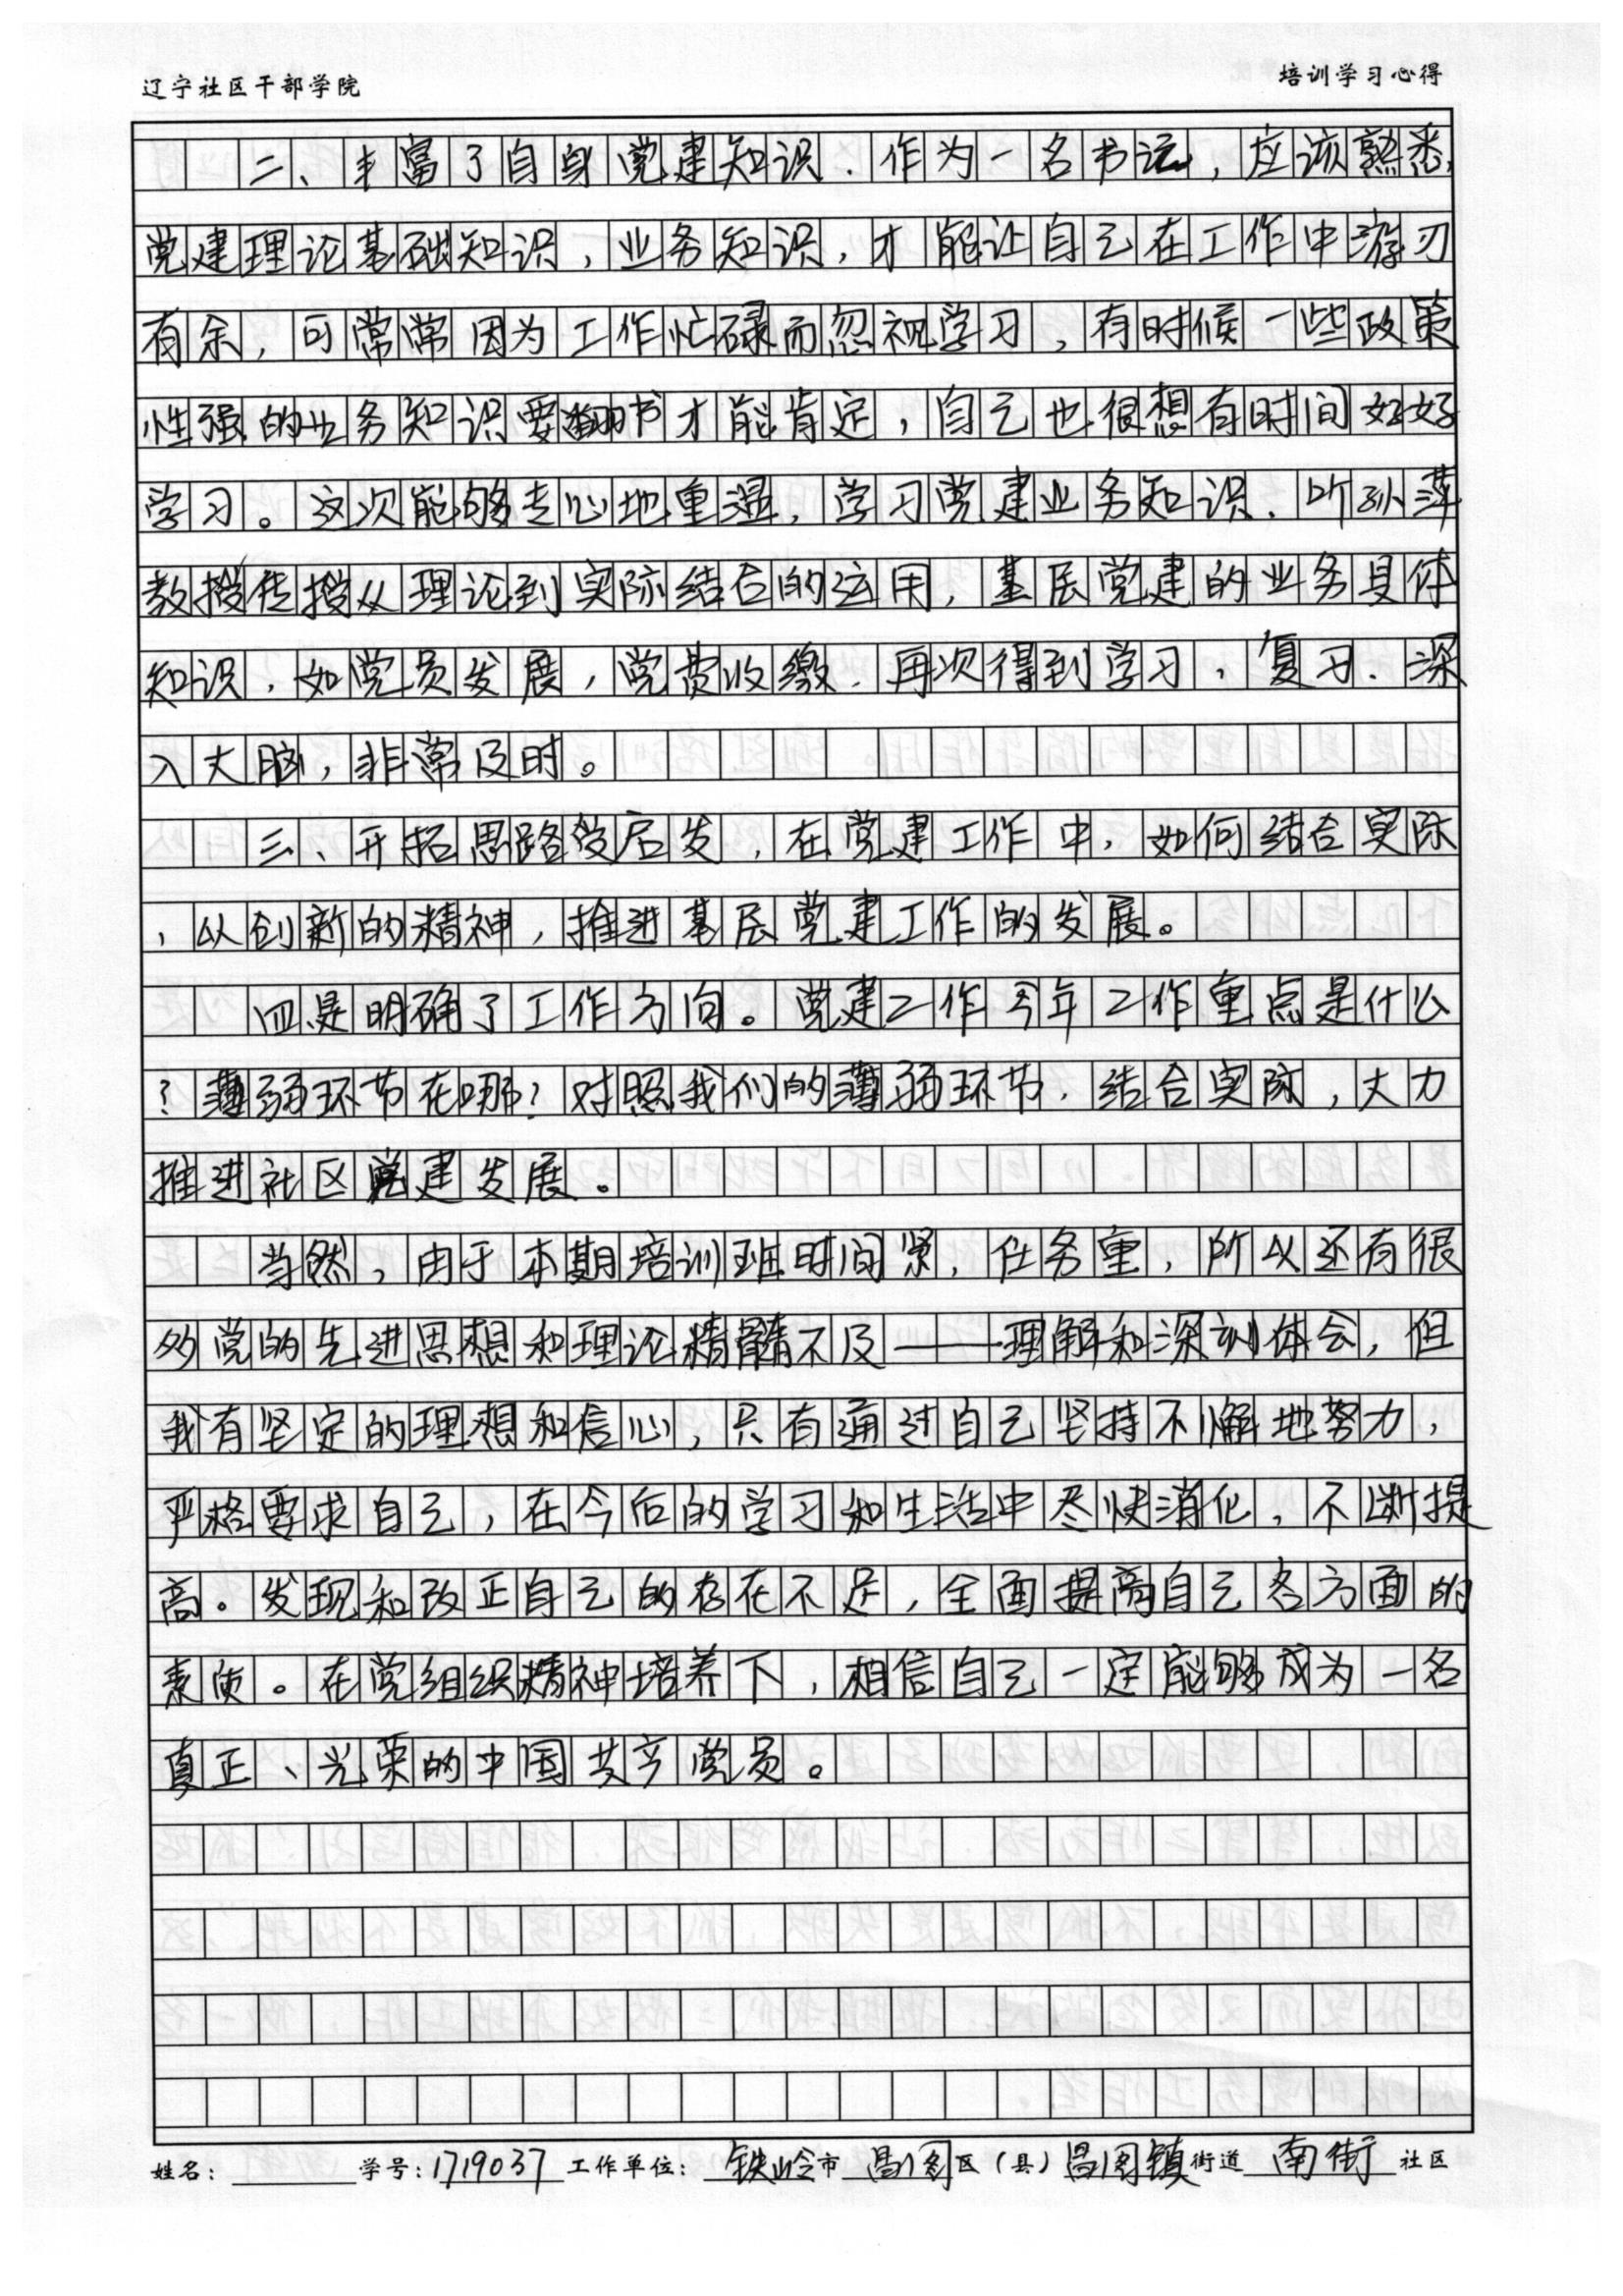 辽宁社区干部学院 培训学习心得
二、丰富了自身党建知识.作为一名书记,应该熟悉
党建理论基础知识,业务知识,才能让自己在工作中游刃
有余,可常常因为工作忙碌而忽视学习,有时候一些政策
性强的业务知识要翻书才能肯定,自己也很想有时间好好
学习。这次能够专心地重温,学习党建业务知识,听孙萍
教授传授从理论到实际结合的运用,基层党建的业务具体
知识,如党员发展,党费收缴.再次得到学习,复习.深
入大脑,非常及时。
三、开拓思路受启发,在党建工作中,如何结合实际
,以创新的精神,推进基层党建工作的发展。
四是明确了工作方向。党建工作今年工作重点是什么
?薄弱环节在哪?对照我们的薄弱环节.结合实际,大力
推进社区党建发展。
当然,由于本期培训班时间紧,任务重,所以还有很
多党的先进思想和理论精髓不及——理解和深刻体会,但
我有坚定的理想和信心,只有通过自己坚持不懈地努力,
严格要求自己,在今后的学习和生活中尽快消化,不断提
高。发现和改正自己的存在不足,全面提高自己各方面的
素质。在党组织精神培养下,相信自己一定能够成为一名
真正、光荣的中国共产党员。
姓名: 学号:1719037 工作单位:铁岭市昌图区(县)昌图镇街道南街社区